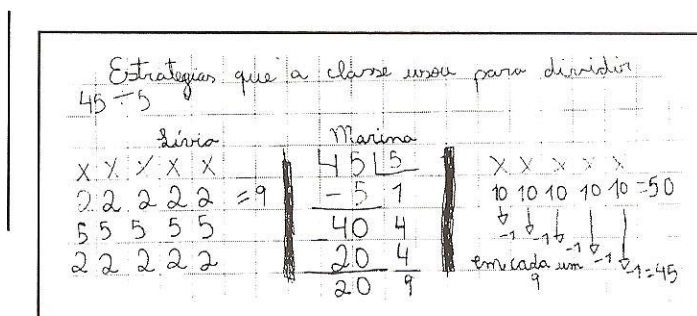 Estrategias que a classe usou para dividir
45 ÷ 5
Lívia
X X X X X
2 2 2 2 2 = 9
5 5 5 5 5
2 2 2 2 2
Marina
45 5
- 5 1
40 4
20 4
20 9
X X X X X
10 10 10 10 10 = 50
-1 -1 -1 -1 -1 = 45
em cada um
9